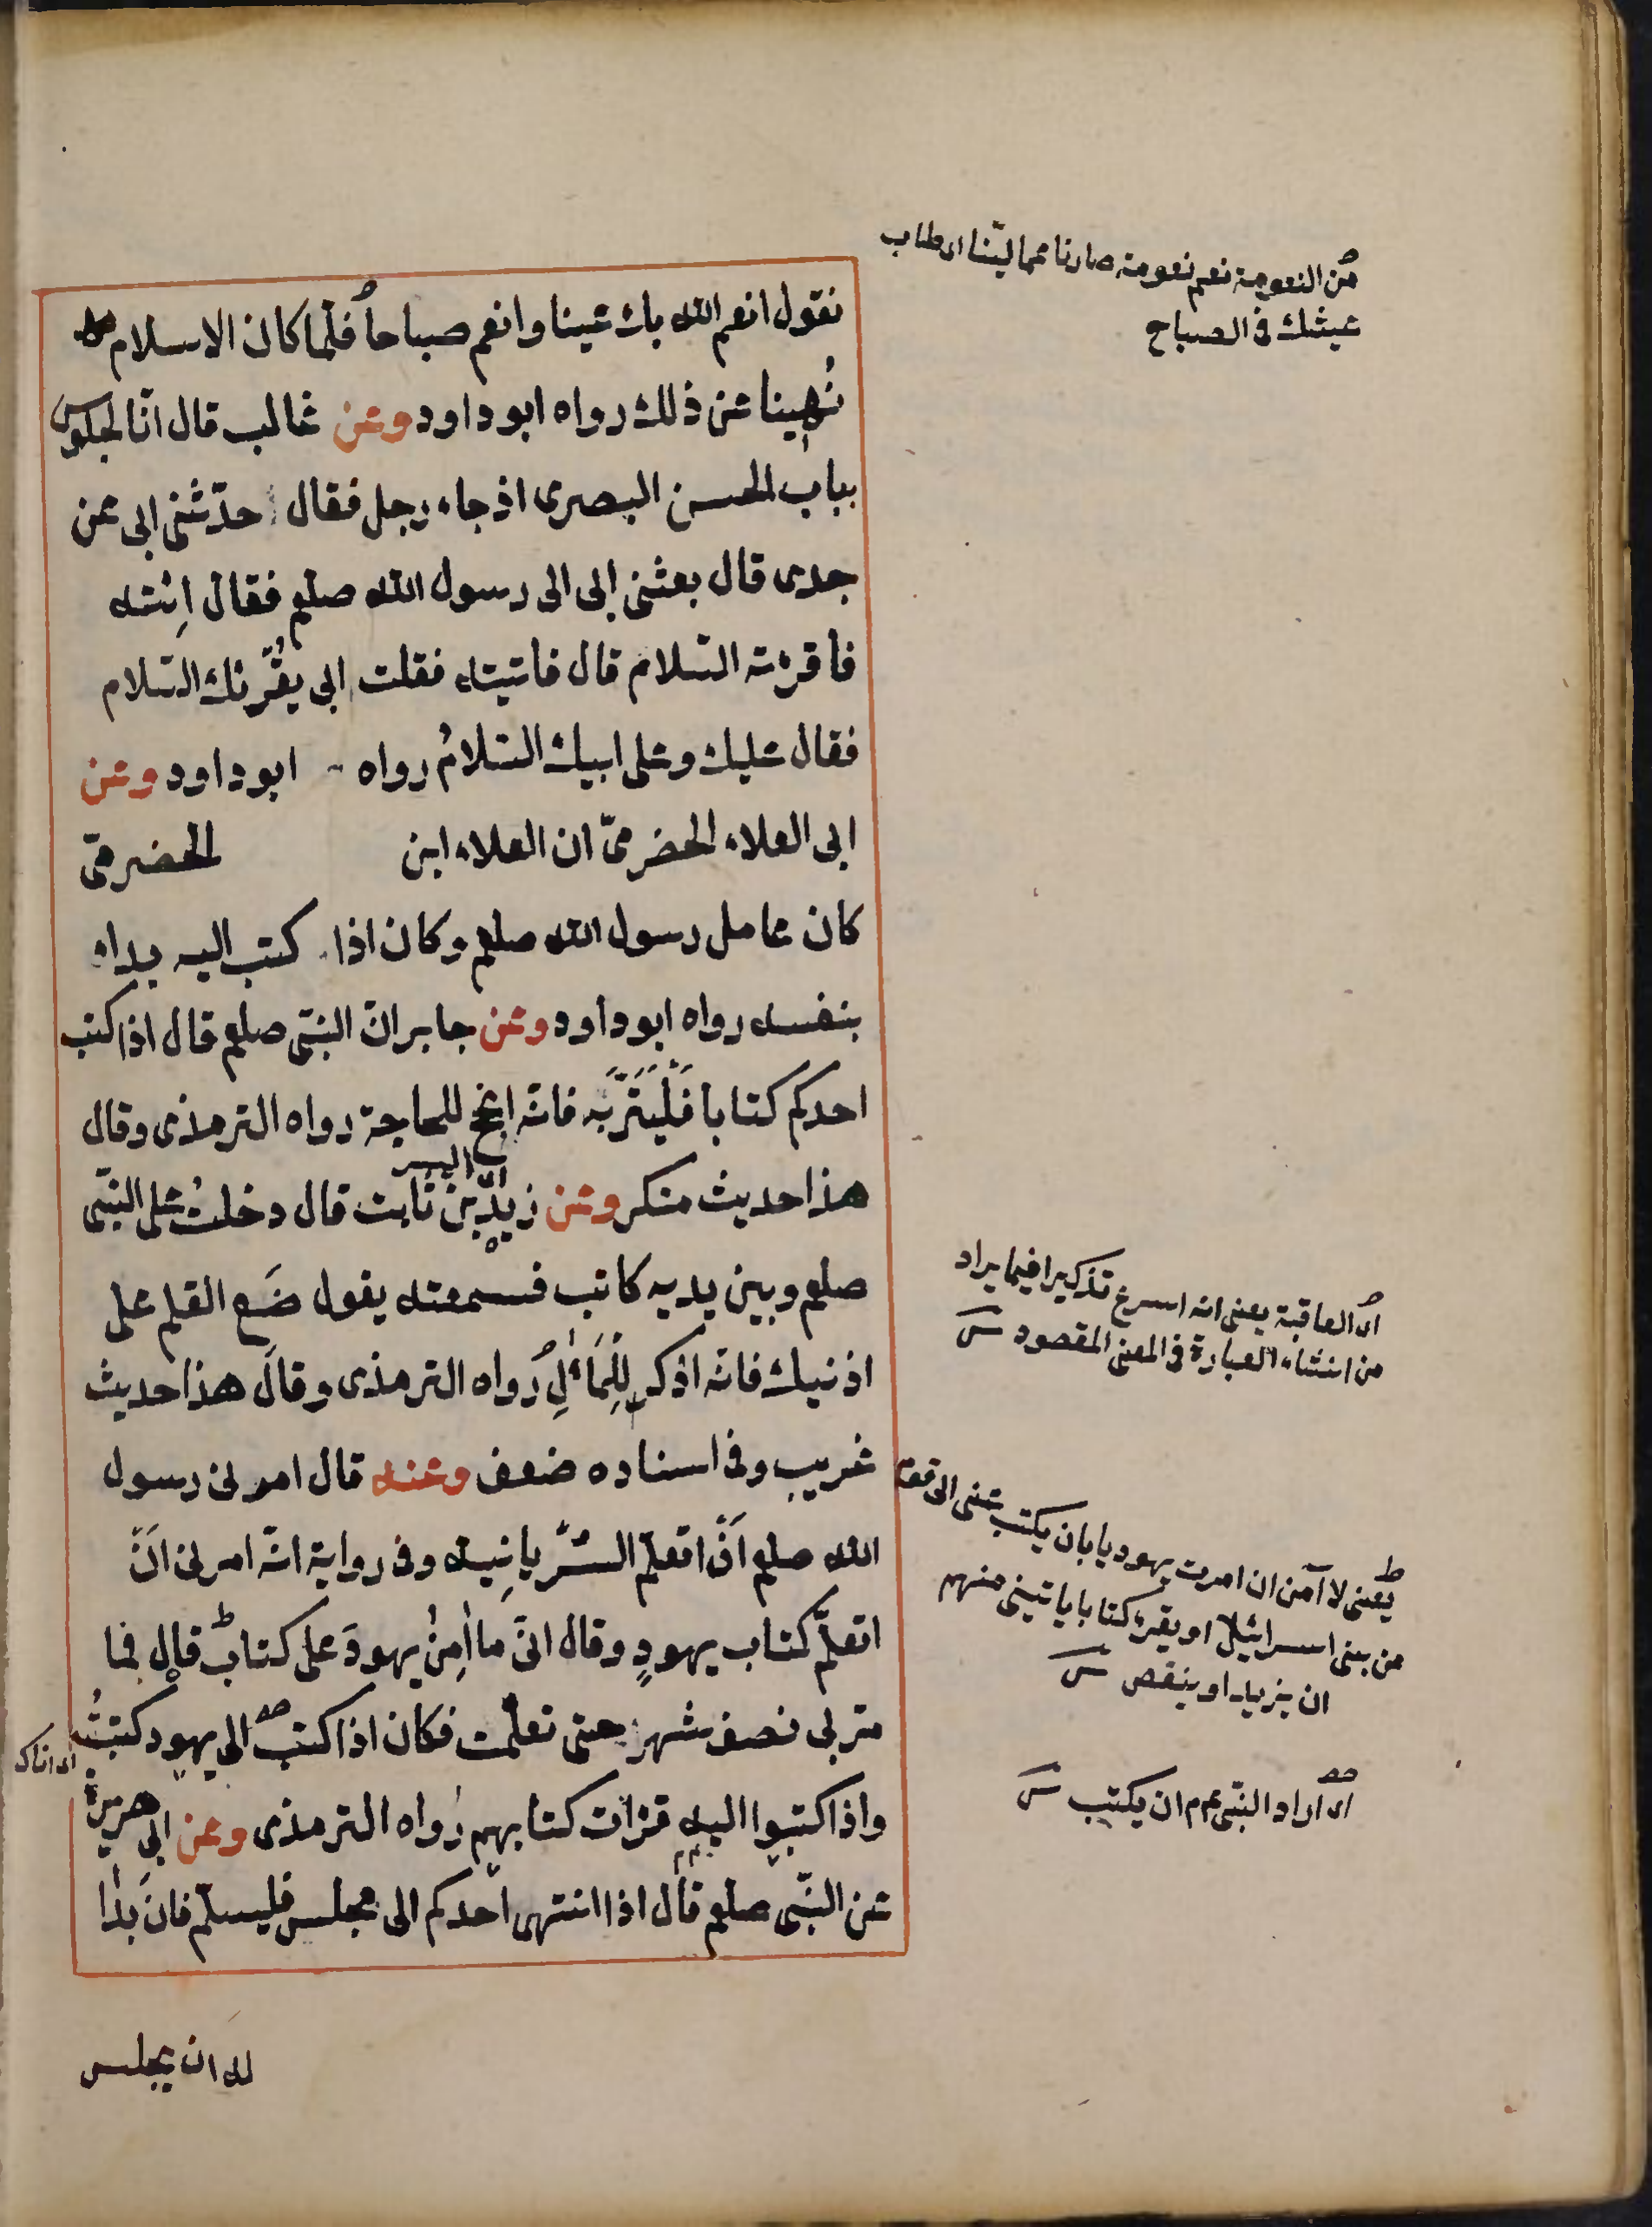 نقول انعم الله بك عينا وانعم صباحا فلما كان الاسلام
نُهينا عن ذلك رواه ابو داود وعن غالب قال انّا لجلوس
بباب الحسن البصرى اذ جاء رجل فقال حدّثنى ابى عن
جدى قال بعثنى ابى الى رسول الله صلعم فقال اِئته
فأقرئه السّلام قال فاتيته فقلت ابى يقرئك السّلام
فقال عليك وعلى ابيك السّلامُ رواه ابو داود وعن
ابى العلاء الحضرمىّ ان العلاء ابن الحضرمىّ
كان عامل رسول الله صلعم وكان اذا كتب اليه بداه
بنفسه رواه ابو داود وعن جابر انّ النبّى صلعم قال اذا كتب
احدكم كتابا فَلْيُتَرِّبْه فانّه انجح للحاجة رواه الترمذى وقال
ايسر
هذا حديث منكر وعن زيد بن ثابت قال دخلتُ على النبّى
صلعم وبين يديه كاتب فسمعته يقول ضَع القلم على
اذنيك فانّه اذكر لِلْمَآلِ رواه الترمذى وقال هذا حديث
غريب وفى اسناده ضعف وعنه قال امرنى رسول
الله صلعم اَنْ اتعلّم السّريانِية وفى رواية انّه امرنى اَنْ
اتعلّم كتاب يهودٍ وقال انّى ما اٰمنُ يهودَ على كتاب قال فما
مرّ بى نصف شهر حتى تعلّمت فكان اذا كتب الى يهود كتبتُ
واذا كتبوا اليه قرأت كتابهم رواه الترمذى وعن ابى هريرة
عن النبّى صلعم قال اذا انتهى احدكم الى مجلس فليسلّم فان بَدَا
له ان يجلس
من النعومة نعم نعومة صار ناعما ليّنا اى طاب
عيشك فى الصباح
اى العاقبة يعنى انه اسرع تذكيرا فيما يراد
من انشاء العبارة فى المعنى المقصود
يعنى لا آمن ان امرت يهوديا بان يكتب عنى الى قوم
من بنى اسرائيل او يقرء كتابا ياتينى منهم
ان يزيد او ينقص
اى اراد النبّى عم ان يكتب